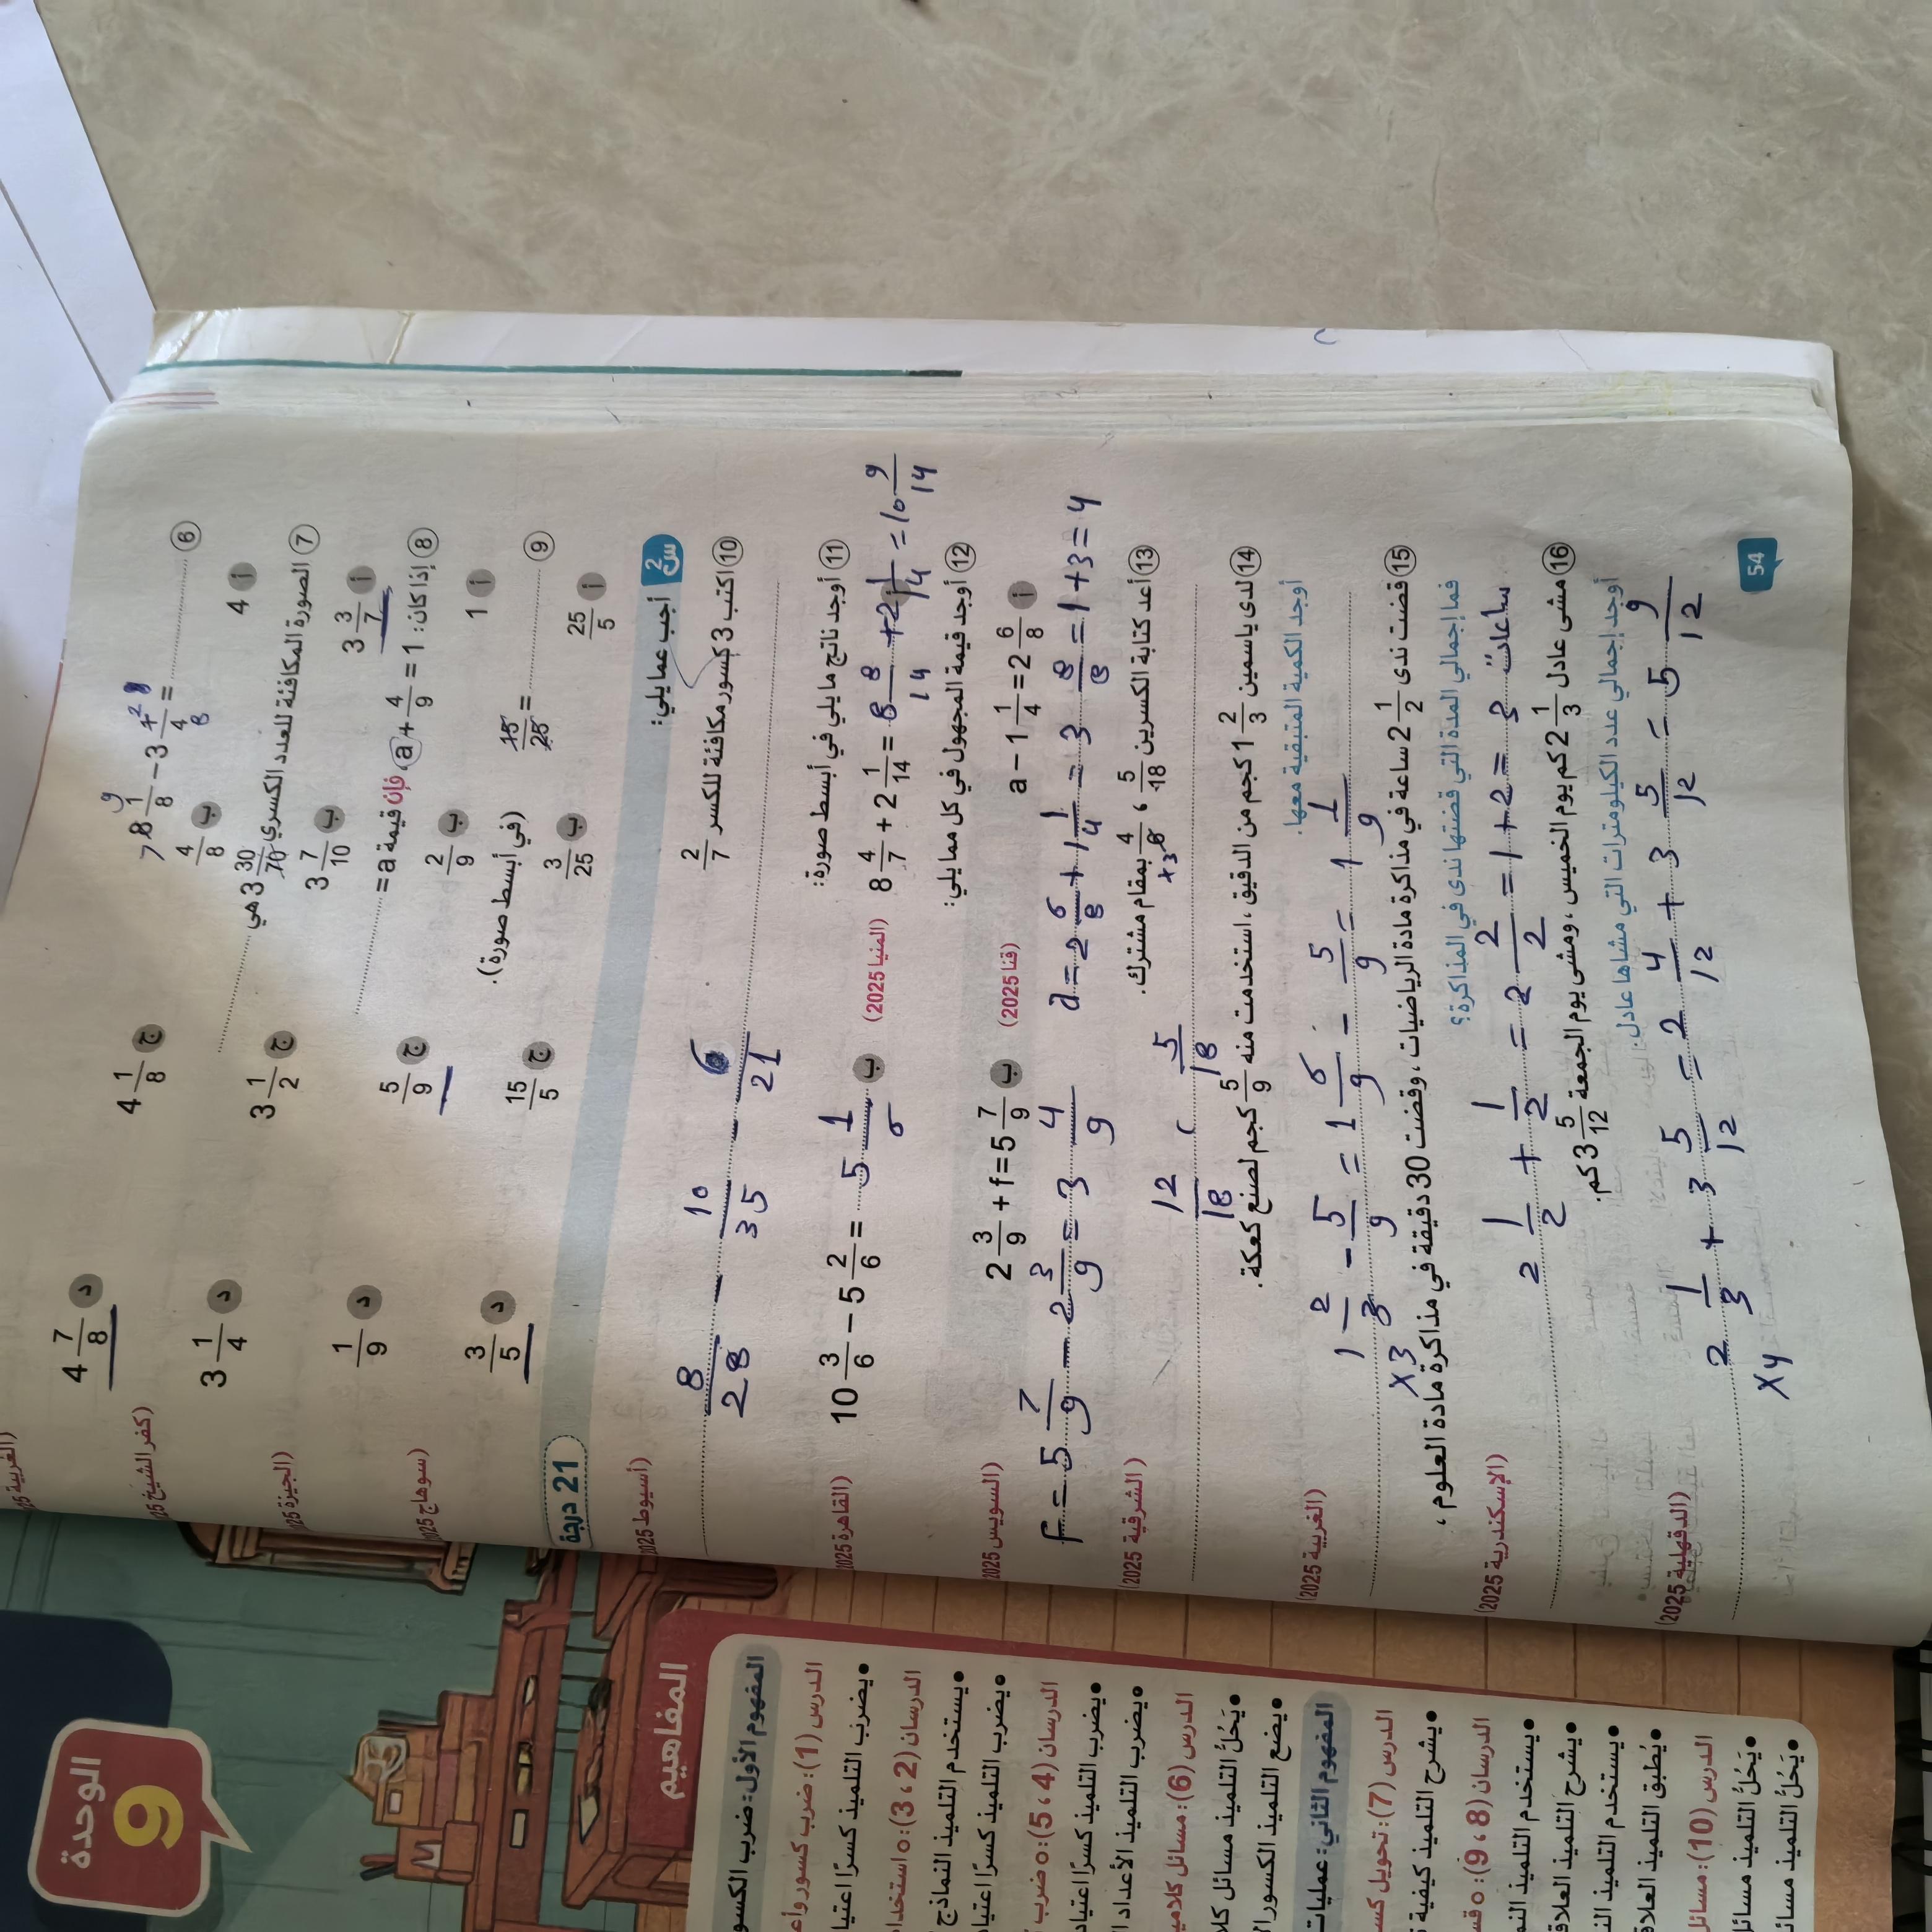 6 8 1/8 − 3 1/4 = 7 9 2 8
أ 4 ب 4/8 ج 4 1/8 د 4 7/8
7 الصورة المكافئة للعدد الكسري 3 30/70 هي (كفر الشيخ
أ 3 3/7 ب 3 7/10 ج 3 1/2 د 3 1/4
8 إذا كان: 1 = a + 4/9، فإن قيمة a = (الجيزة
أ 1 ب 2/9 ج 5/9 د 1/9
9 15/25 = (في أبسط صورة). (سوهاج
أ 25/5 ب 3/25 ج 15/5 د 3/5
س 2 أجب عما يلي: 21 درجة
10 اكتب 3 كسور مكافئة للكسر 2/7 (أسيوط 2025)
8/28 – 10/35 – 6/21
11 أوجد ناتج ما يلي في أبسط صورة:
أ 8 4/7 + 2 1/14 = 8 8/14 + 2 1/14 = 10 9/14 (المنيا 2025)
ب 10 3/6 − 5 2/6 = 5 1/6 (القاهرة 2025)
12 أوجد قيمة المجهول في كل مما يلي:
أ a − 1 1/4 = 2 6/8 (قنا 2025) ب 2 3/9 + f = 5 7/9 (السويس 2025)
a = 2 6/8 + 1 1/4 = 3 8/8 = 1 + 3 = 4
f = 5 7/9 − 2 3/9 = 3 4/9
13 أعد كتابة الكسرين 5/18 ، 4/6 بمقام مشترك. (الشرقية 2025)
12/18 , 5/18
14 لدى ياسمين 1 2/3 كجم من الدقيق، استخدمت منه 5/9 كجم لصنع كعكة.
أوجد الكمية المتبقية معها. (الغربية 2025)
1 2/3 − 5/9 = 1 6/9 − 5/9 = 1 1/9
×3
15 قضت ندى 2 1/2 ساعة في مذاكرة مادة الرياضيات، وقضت 30 دقيقة في مذاكرة مادة العلوم،
فما إجمالي المدة التي قضتها ندى في المذاكرة؟ (الإسكندرية 2025)
2 1/2 + 1/2 = 2 2/2 = 1 + 2 = 3 ساعات
16 مشى عادل 2 1/3 كم يوم الخميس، ومشى يوم الجمعة 3 5/12 كم.
أوجد إجمالي عدد الكيلومترات التي مشاها عادل. (الدقهلية 2025)
2 1/3 + 3 5/12 = 2 4/12 + 3 5/12 = 5 9/12
×4
54
الوحدة
9
المفاهيم
المفهوم الأول: ضرب الكسو
الدرس (1): ضرب كسور وأع
• يضرب التلميذ كسرًا اعتيا
الدرسان (2 ، 3): ○ استخدا
• يستخدم التلميذ النماذج
• يضرب التلميذ كسرًا اعتياد
الدرسان (4 ، 5): ○ ضرب
• يضرب التلميذ كسرًا اعتياد
• يضرب التلميذ الأعداد ا
الدرس (6): مسائل كلامي
• يَحُلُّ التلميذ مسائل كلا
• يضع التلميذ الكسور ا
المفهوم الثاني: عمليات
الدرس (7): تحويل كس
• يشرح التلميذ كيفية
الدرسان (8 ، 9): ○ قس
• يستخدم التلميذ النم
• يشرح التلميذ العلاق
• يستخدم التلميذ الن
• يُطبق التلميذ العلاق
الدرس (10): مسائل
• يَحُلُّ التلميذ مسائ
• يَحُلُّ التلميذ مسائ